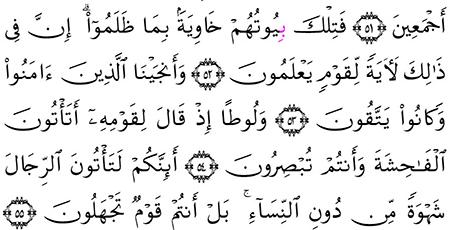 أَجْمَعِينَ ﴿٥١﴾ فَتِلْكَ بُيُوتُهُمْ خَاوِيَةًۢ بِمَا ظَلَمُوٓا۟ ۗ إِنَّ فِى
ذَٰلِكَ لَـَٔايَةً لِّقَوْمٍ يَعْلَمُونَ ﴿٥٢﴾ وَأَنجَيْنَا ٱلَّذِينَ ءَامَنُوا۟
وَكَانُوا۟ يَتَّقُونَ ﴿٥٣﴾ وَلُوطًا إِذْ قَالَ لِقَوْمِهِۦٓ أَتَأْتُونَ
ٱلْفَـٰحِشَةَ وَأَنتُمْ تُبْصِرُونَ ﴿٥٤﴾ أَئِنَّكُمْ لَتَأْتُونَ ٱلرِّجَالَ
شَهْوَةً مِّن دُونِ ٱلنِّسَآءِ ۚ بَلْ أَنتُمْ قَوْمٌ تَجْهَلُونَ ﴿٥٥﴾